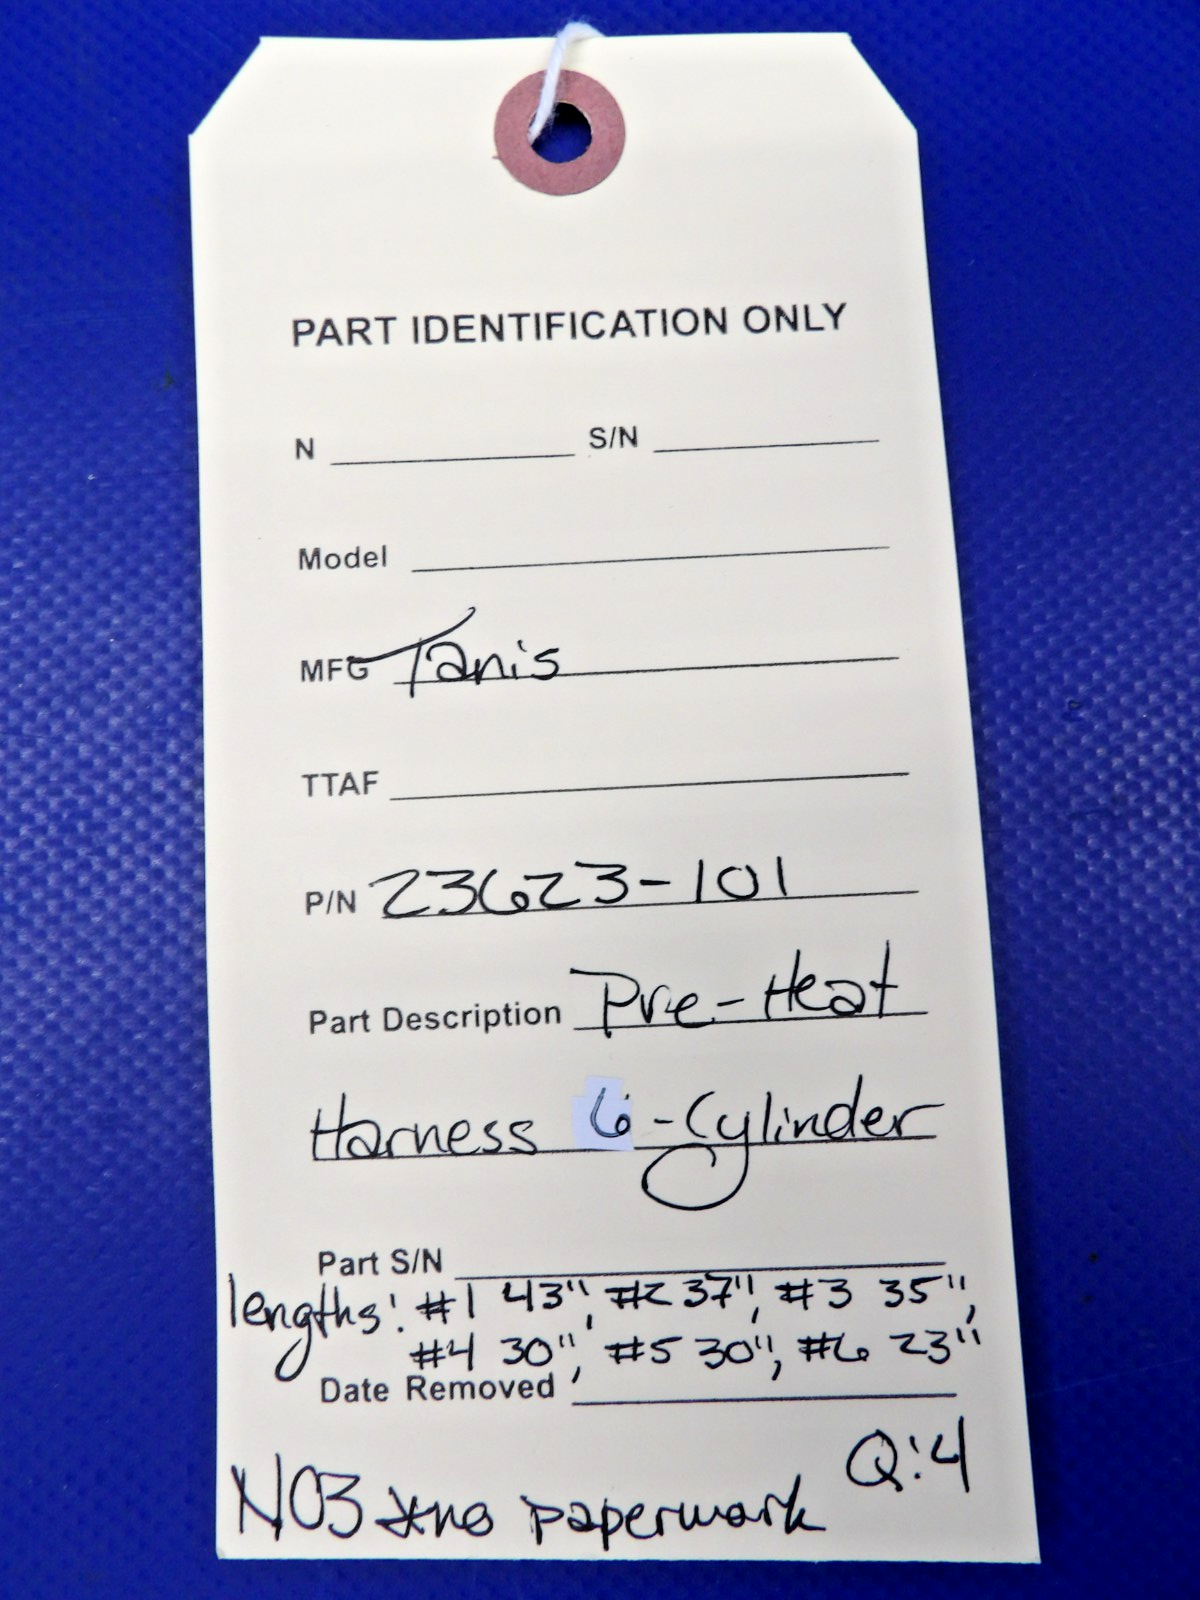 PART IDENTIFICATION ONLY
N S/N
Model
MFG Tanis
TTAF
P/N 23623-101
Part Description Pre-Heat
Harness 6-Cylinder
Part S/N
lengths: #1 43", #2 37", #3 35",
#4 30", #5 30", #6 23"
Date Removed
Q:4
NO3 *no paperwork